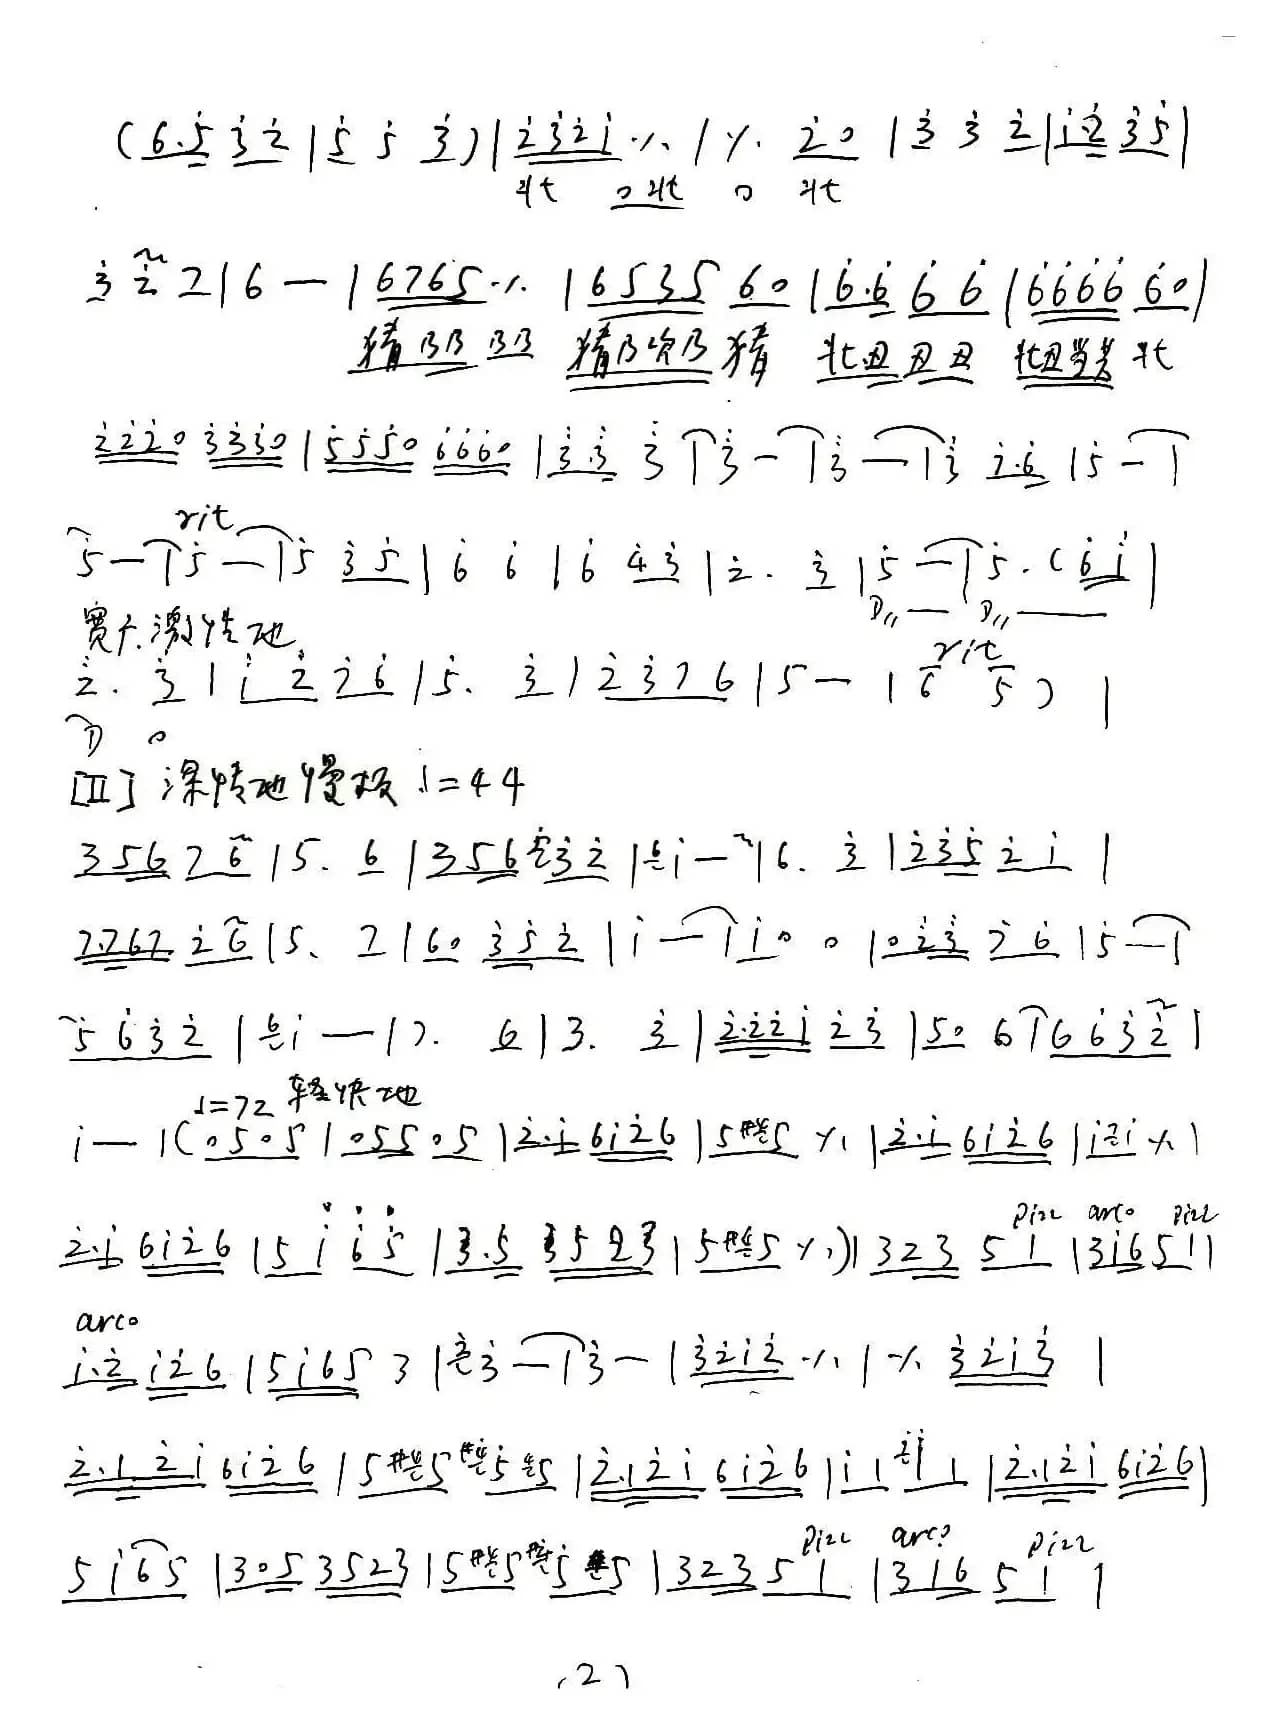 (6.5 3 2 | 5 5 3) | 2321 ٪ | ٪ 20 | 3 3 2 | 1.2 35 |
0 0
3 2 7 | 6 — | 6765 ٪ | 6535 60 | 6.6 6 6 | 6666 60 |
猪 猪 猪 丑 丑 丑 丑
2220 3330 | 5550 6660 | 3.3 3 | 3 — | 3 — | 3 7.6 | 5 — |
rit
5 — | 5 — | 5 35 | 6 6 | 6 43 | 2. 3 | 5 — | 5. (61 |
宽广激情地
rit
2. 3 | 1 2 76 | 5. 3 | 2376 | 5 — | 6 5 ) |
[II] 深情地慢板 ♩=44
356 76 | 5. 6 | 356 532 | 6 1 — | 6. 3 | 235 21 |
7.767 26 | 5. 7 | 60 352 | 1 — | 10 0 | 023 76 | 5 — |
5632 | 6 1 — | 7. 6 | 3. 3 | 2.221 23 | 50 6 | 6632 |
♩=72 轻快地
1 — | (0505 | 055 05 | 2.1 6126 | 5#45 ٪ | 2.1 6126 | 121 ٪ |
pizz arco pizz
2.1 6126 | 51 65 | 3.5 3523 | 5#45 ٪) | 323 51 | 316 51 |
arco
1.2 126 | 5165 3 | 2 3 — | 3 — | 3212 ٪ | ٪ 3213 |
2.121 6126 | 5#45 #4545 | 2.121 6126 | 11 21 1 | 2.121 6126 |
pizz arco pizz
5165 | 305 3523 | 5#45 #4545 | 323 51 | 316 51 |
(2)